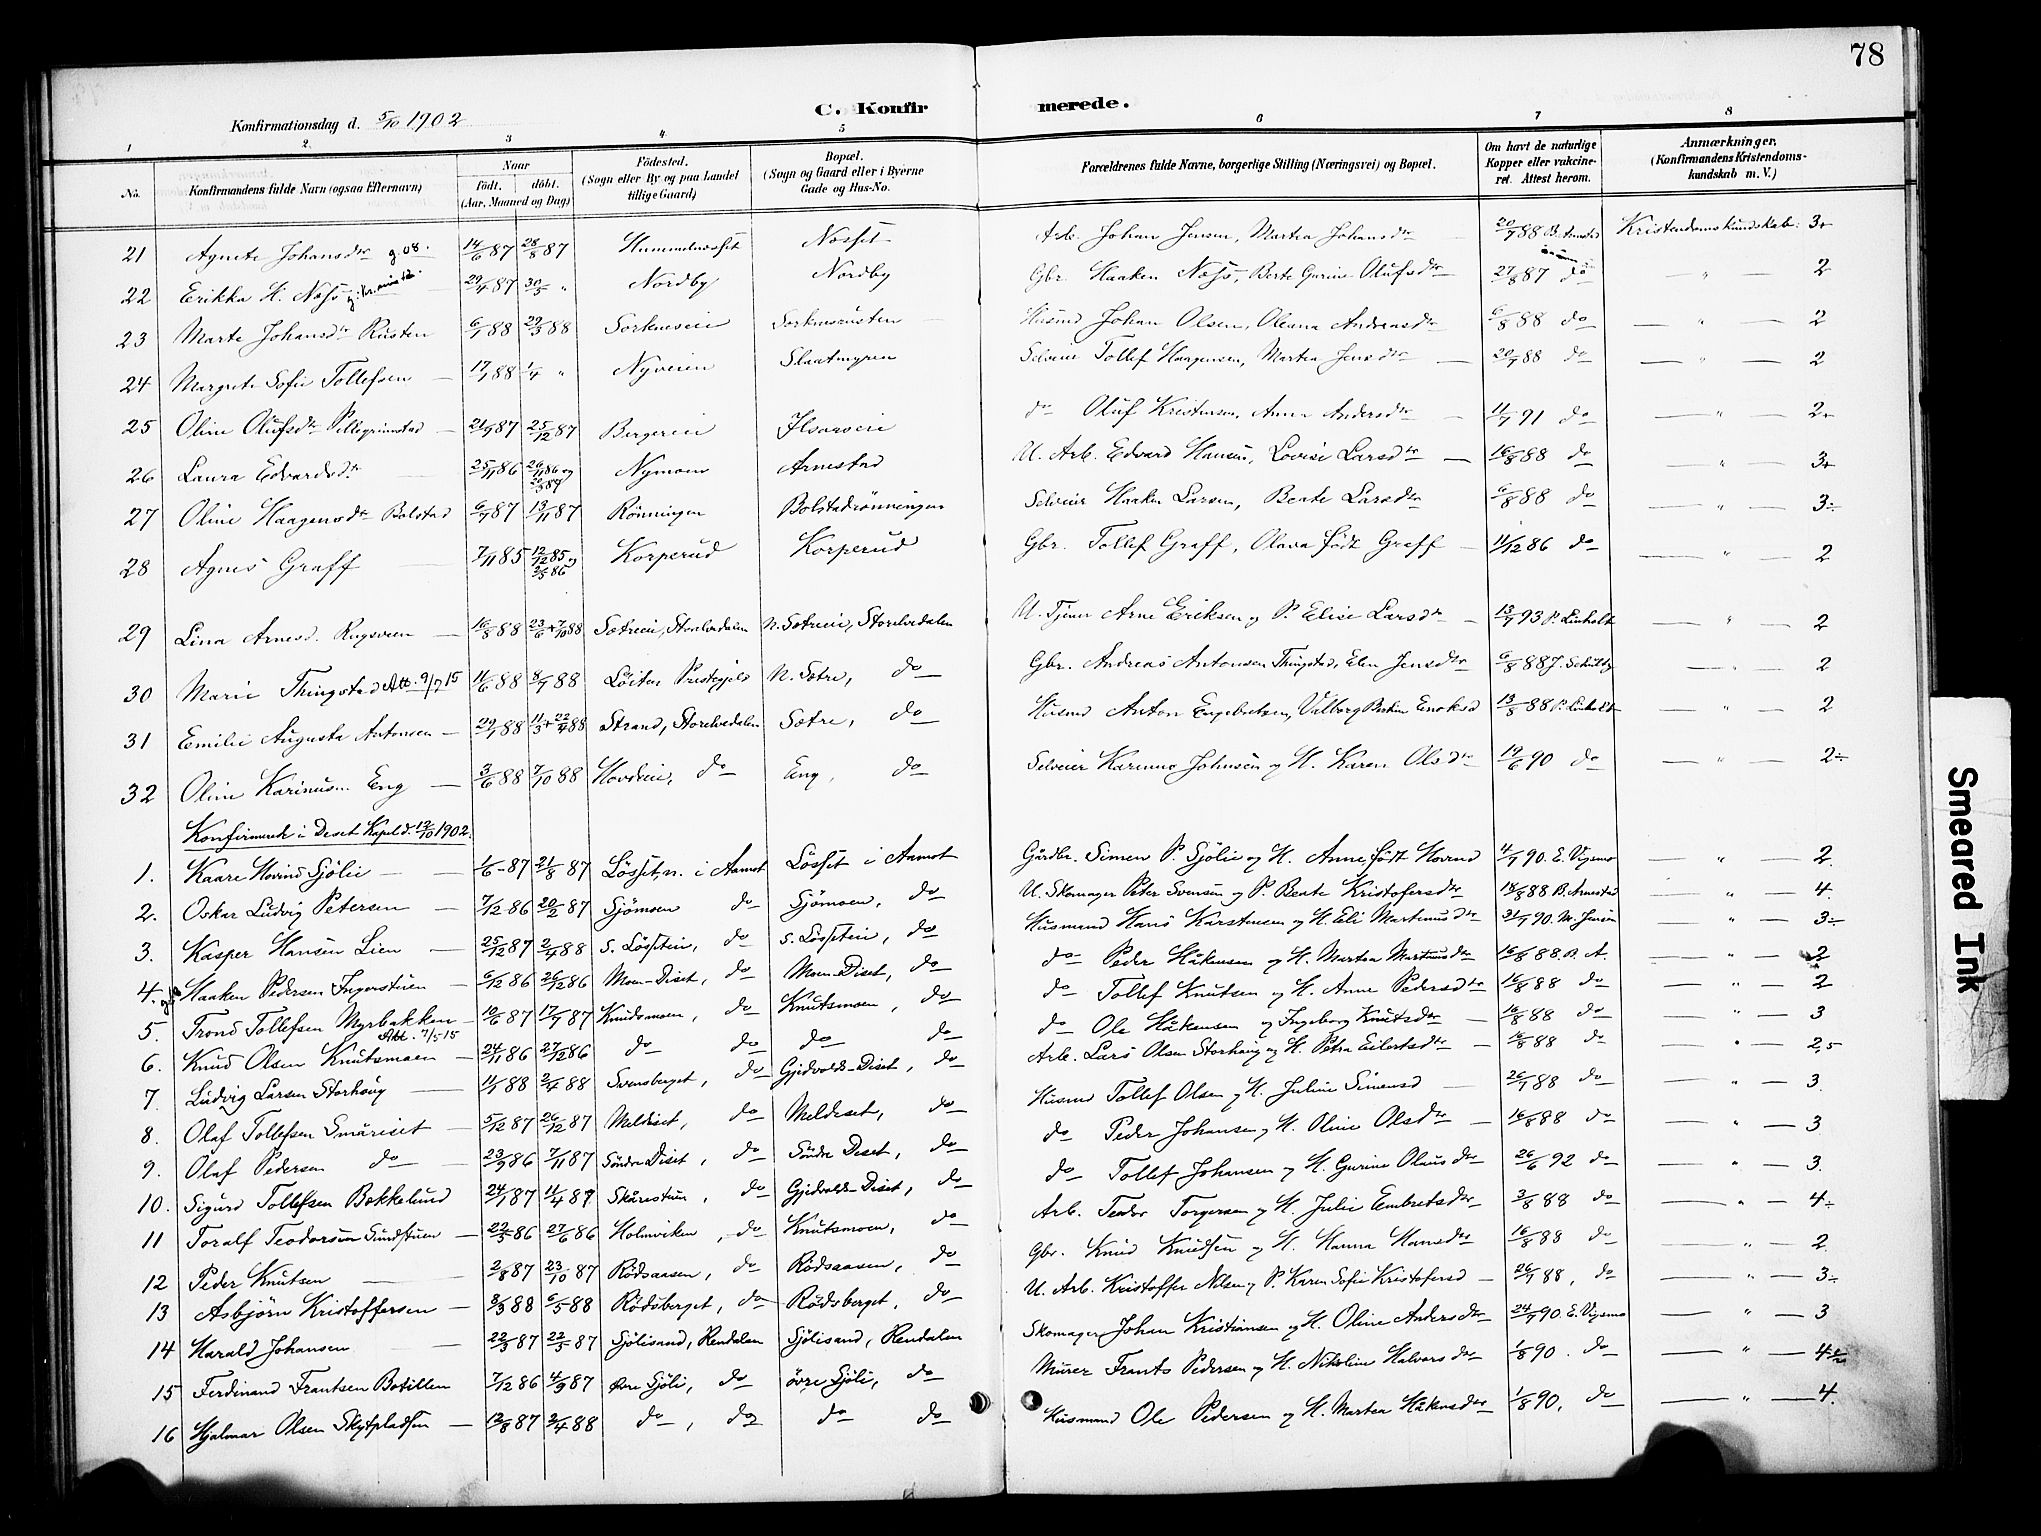 78
C. Konfirmerede.
Konfirmationsdag d. 5/10 1902
1 2. 3 4. 5 6 7 8
No. Konfirmandens fulde Navn (ogsaa Efternavn) Naar født. døbt. (Aar, Maaned og Dag) Fødested. (Sogn eller By og paa Landet tillige Gaard) Bopæl. (Sogn og Gaard eller i Byerne Gade og Hus-No. Forældrenes fulde Navne, borgerlige Stilling (Næringsvei) og Bopæl. Om havt de naturlige Kopper eller vakcineret. Attest herom. Anmærkninger. (Konfirmandens Kristendomskundskab m. V.)
21 Agnete Johansdtr 14/6 87 28/8 87 Nosset Arb. Johan Jensen, Martea Johansdtr 20/7 88 B. Arnestad Kristendomskundskab: 3+
22 Erikka H. Næss 29/4 87 30/5 " Nordby Nordby Gbr. Haaken Næss, Berte Gurine Olufsdtr 27/8 87 do " 2
23 Marte Johansdtr Rusten 6/1 88 29/3 88 Sorknesrusten Husmd Johan Olsen, Oleana Andreasdtr 6/8 88 do " 2
24 Margrete Sofie Tollefsen 17/1 88 1/4 " Nyveien Slaatmyren Selveier Tollef Haagensen, Martea Jensdtr 20/7 88 do " 2
25 Oline Olufsdtr Pellegrinstad 21/9 87 25/12 87 Bergereie do Oluf Kristensen, Anne Andersdtr 11/7 91 do " 2+
26 Laura Edvardsdtr 25/11 86 Nymoen Arnestad U. Arb. Edvard Hansen, Lovise Larsdtr 16/8 88 do " 3+
27 Oline Haagensdtr Bolstad 6/9 87 13/11 87 Rønningen Bolstadrønningen Selveier Haaken Larsen, Beate Larsdtr 6/8 88 do " 3÷
28 Agnes Graff 7/11 85 12/12 85 og 2/5 86 Korperud Korperud Gbr. Tollef Graff, Olava født Graff 11/12 86 do " 2
29 Lina Arnesd. Rugsveen 16/6 88 23/6 + 7/10 88 Sætreeie, Storelvedalen N. Sætreeie, Storelvdalen U. Tjener Arne Eriksen og P. Elise Larsdtr 13/7 93 P. Linholt " 2
30 Marie Thingstad Att. 9/7 15 11/6 88 8/7 88 Løiten Prestegjeld N. Sætre, do Gbr. Andreas Antonsen Thingstad, Elen Jensdtr 6/8 88 J. Schultz " 2
31 Emilie Augusta Antonsen 29/1 88 11/3 + 22/4 88 Strand, Storelvedalen Sætre, do Husmd Anton Engebretsen, Valborg Bertine Enoksd 13/8 88 P. Linholt " 2
32 Oline Karinus... Eng 3/6 88 7/10 88 Hovdeie, do Eng, do Selveier Karinus Johnsen og H. Karen Olsdtr 19/6 90 do " 2÷
Konfirmerede i Deset Kapel d. 12/10 1902.
1. Kaare Hovind Sjølie 1/6 - 87 21/8 87 Løsset, n. i Aamot Løsset i Aamot Gårdbr. Simen P. Sjølie og H. Anne født Hovind 4/7 90. E. Vigsmo " 2.
2. Oskar Ludvig Petersen 7/12 86 20/2 87 Sjømoen do Sjømoen, do U. Skomager Peter Svensen og P. Beate Kristofersdtr 18/8 88 B. Arnestad " 4.
3. Kasper Hansen Lien 25/12 87 2/4 88 S. Løsseteie, do S. Løsseteie, do Husmand Hans Karstensen og H. Eli Martinusdtr 31/7 90. M. Jensen " 3÷
4. Haaken Pedersen Ingerstuen 6/12 86 26/12 86 Moen-Diset, do Moen-Diset, do do Peder Håkensen og H. Martea Martinusdtr 16/8 88 B. A. " 2
5. Trond Tollefsen Myrbakken 10/6 87 17/7 87 Knudsmoen, do Knutsmoen, do do Tollef Knutsen og H. Anne Pedersdtr 16/8 88 do " 2
Att. 7/5 15
6. Knud Olsen Knutsmoen 24/11 86 27/12 86 do do do do do Ole Håkensen og Ingeborg Knutsdtr 16/8 88 do " 3
7. Ludvig Larsen Storhaug 11/1 88 2/4 88 Svensberget, do Gjedvolds-Diset, do Arb. Lars Olsen Storhaug og H. Petra Eilertsdtr 16/8 88 do " 2,5
8. Olaf Tollefsen Smådiset 5/12 87 26/12 87 Meldiset, do Meldeset, do Husmd Tollef Olsen og H. Juline Simensd 26/7 88 do " 3.
9. Olaf Pedersen do 23/9 86 7/11 87 Søndre Diset, do Søndre Deset, do do Peder Johansen og H. Oline Olsdtr 16/8 88 do " 3
10. Sigurd Tollefsen Bakkelund 24/1 87 11/4 87 Skårestuen, do Gjedvolds-Diset, do do Tollef Johansen og H. Gurine Olausdtr 26/6 92 do " 3.
11 Toralf Teodorsen Sundstuen 22/5 86 27/6 86 Holmviken, do Knutsmoen, do Arb. Teodor Torgersen og H. Julie Embretsdtr 3/8 88 do " 4÷
12 Peder Knutsen 2/8 87 23/10 87 Rødsaasen, do Rødsaasen, do Gbr. Knud Knudsen og H. Hanna Hansdtr 16/8 88 do " 2
13 Asbjørn Kristoffersen 8/3 88 6/5 88 Rødsberget, do Rødsberget, do U. Arb. Kristoffer Nilsen og P. Karen Sofie Kristofersd 26/7 88, do " 3÷
14 Harald Johansen 22/3 87 22/5 87 Sjølisand, Rendalen Sjølisand, Rendalen Skomager Johan Kristiansen og H. Oline Andersdtr 24/7 90 E. Vigsmo " 3
15 Ferdinand Frantsen Botillen 7/12 86 4/9 87 Øvre Sjøli, do Øvre Sjøli, do Murer Frants Pedersen og H. Nikoline Halvorsdtr 1/8 90. do "
16 Hjalmar Olsen Skytpladsen 12/8 87 2/4 88 do, do do do Husmand Ole Pedersen og H. Martea Håkensdtr 1/8 90, do " 4.
Smeared Ink